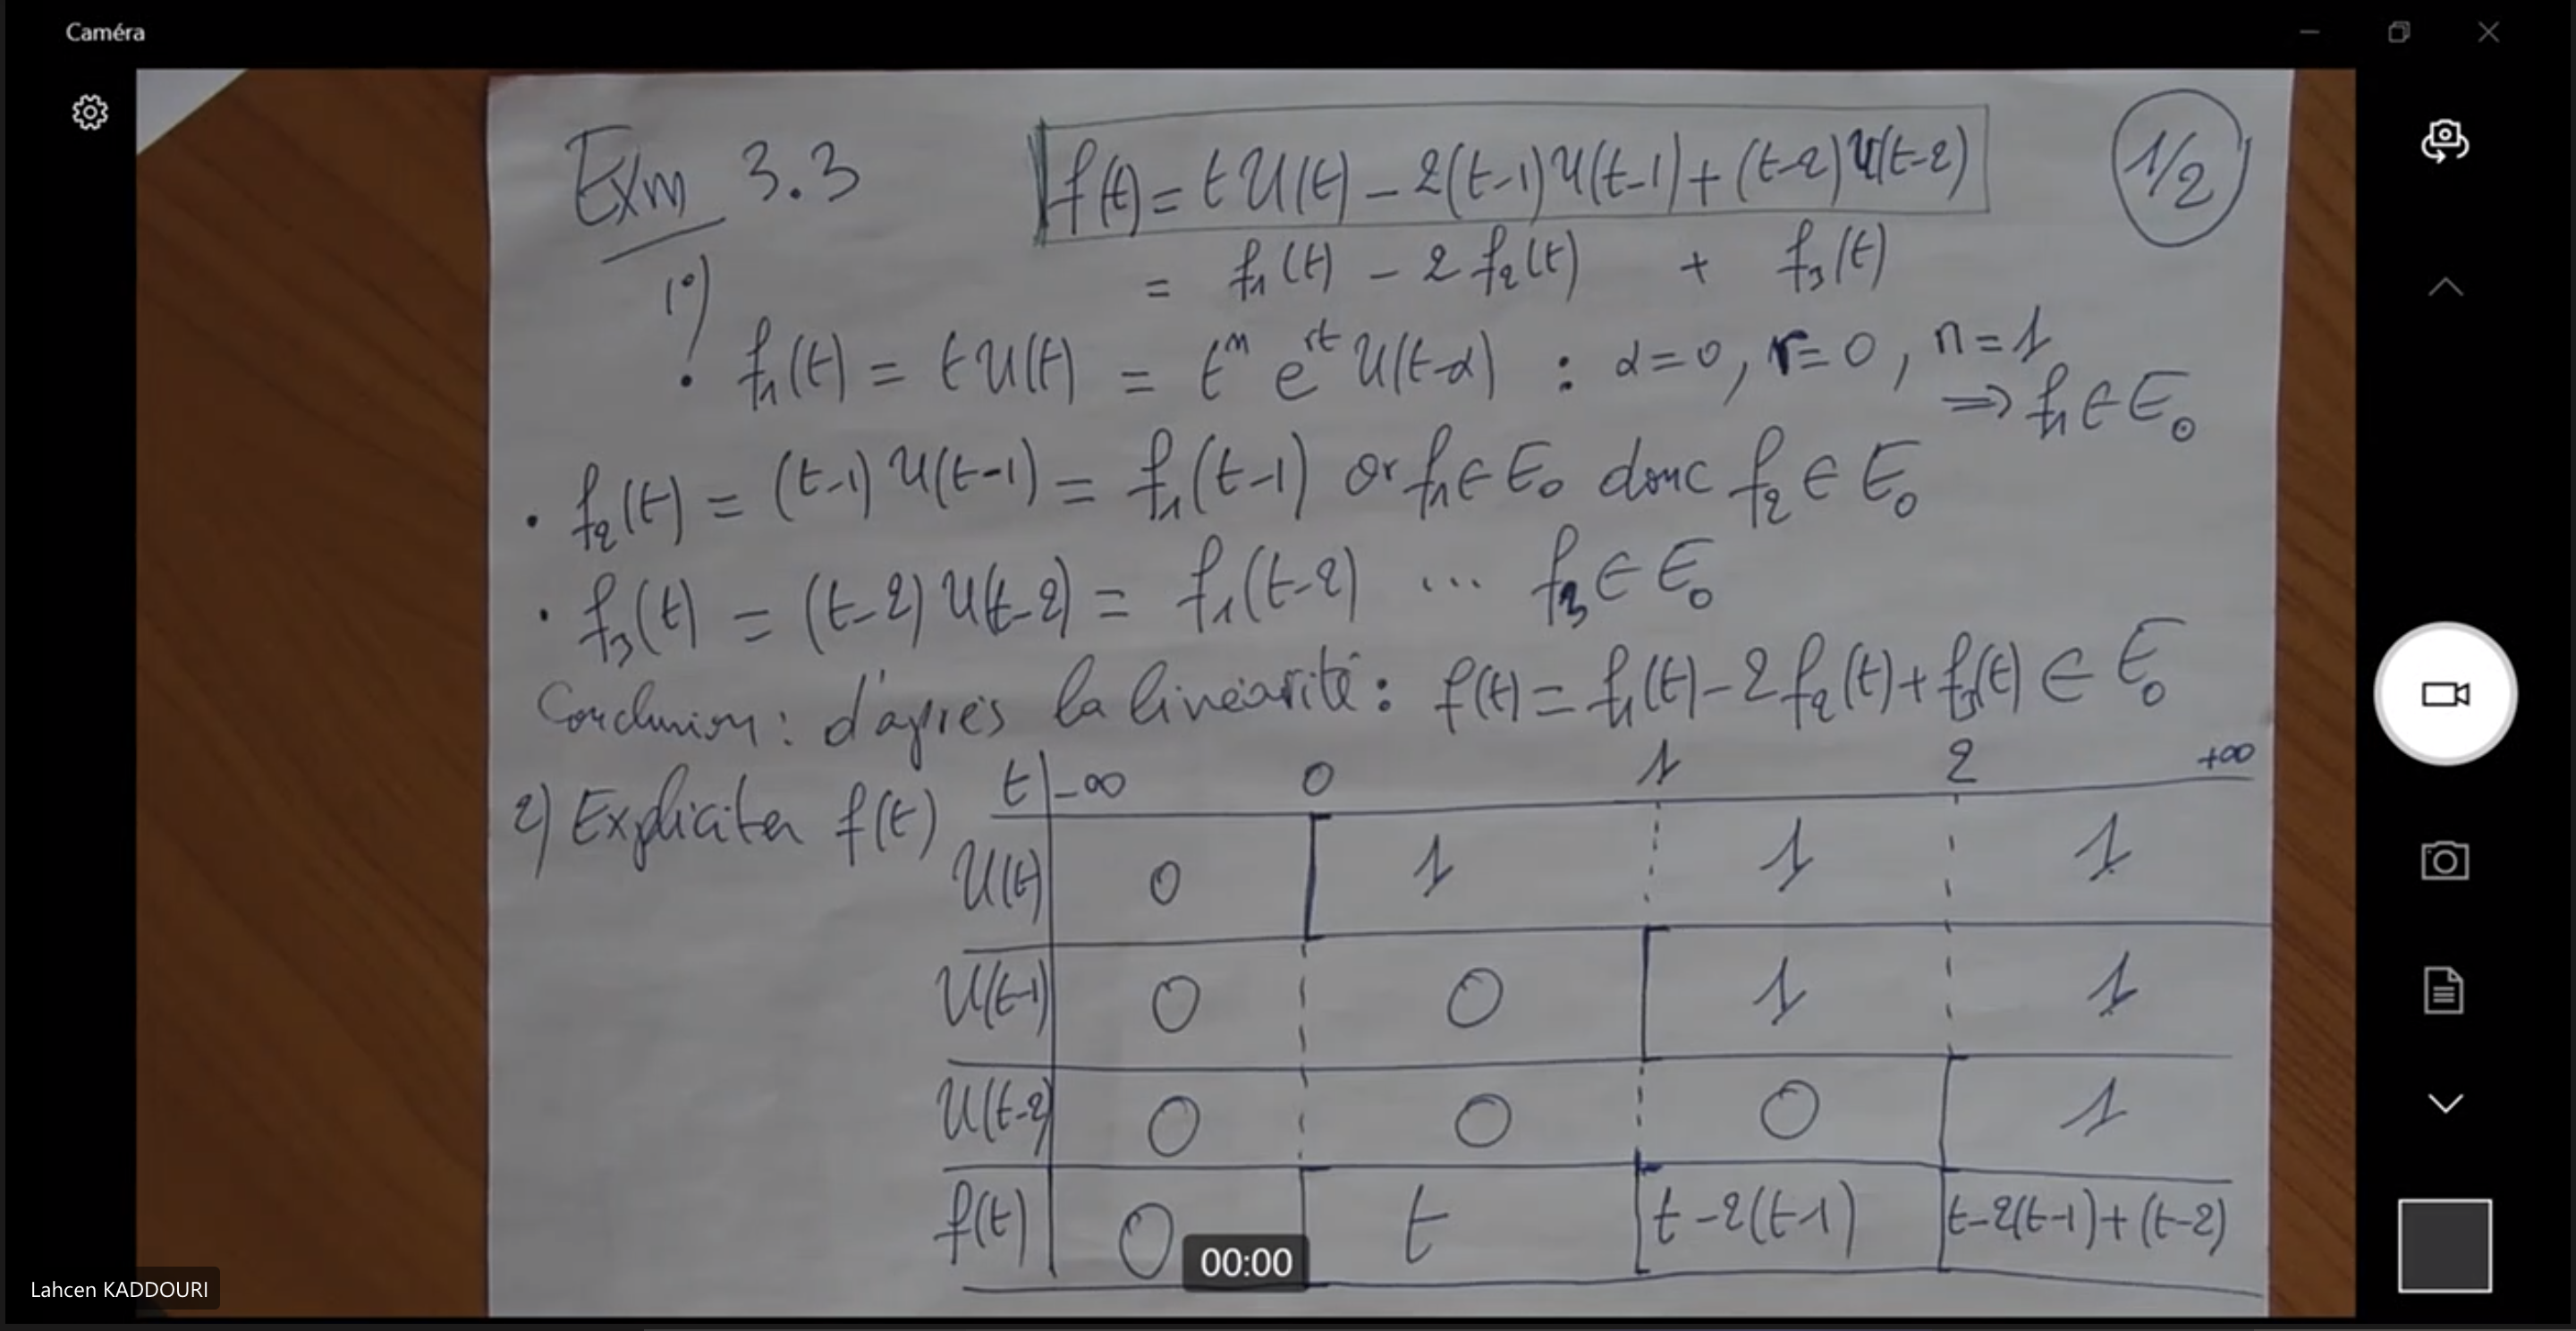 Caméra
Exm 3.3
f(t) = t U(t) - 2(t-1)U(t-1) + (t-2)U(t-2)
1/2
= f₁(t) - 2 f₂(t) + f₃(t)
1°)
• f₁(t) = t U(t) = tⁿ eʳᵗ U(t-α) : α=0, r=0, n=1
⇒ f₁ ∈ E₀
• f₂(t) = (t-1) U(t-1) = f₁(t-1) or f₁ ∈ E₀ donc f₂ ∈ E₀
• f₃(t) = (t-2) U(t-2) = f₁(t-2) ... f₃ ∈ E₀
Conclusion : d'après la linéarité : f(t) = f₁(t) - 2 f₂(t) + f₃(t) ∈ E₀
2) Expliciter f(t)
t -∞ 0 1 2 +∞
U(t) 0 1 1 1
U(t-1) 0 0 1 1
U(t-2) 0 0 0 1
f(t) 0 t t-2(t-1) t-2(t-1)+(t-2)
00:00
Lahcen KADDOURI